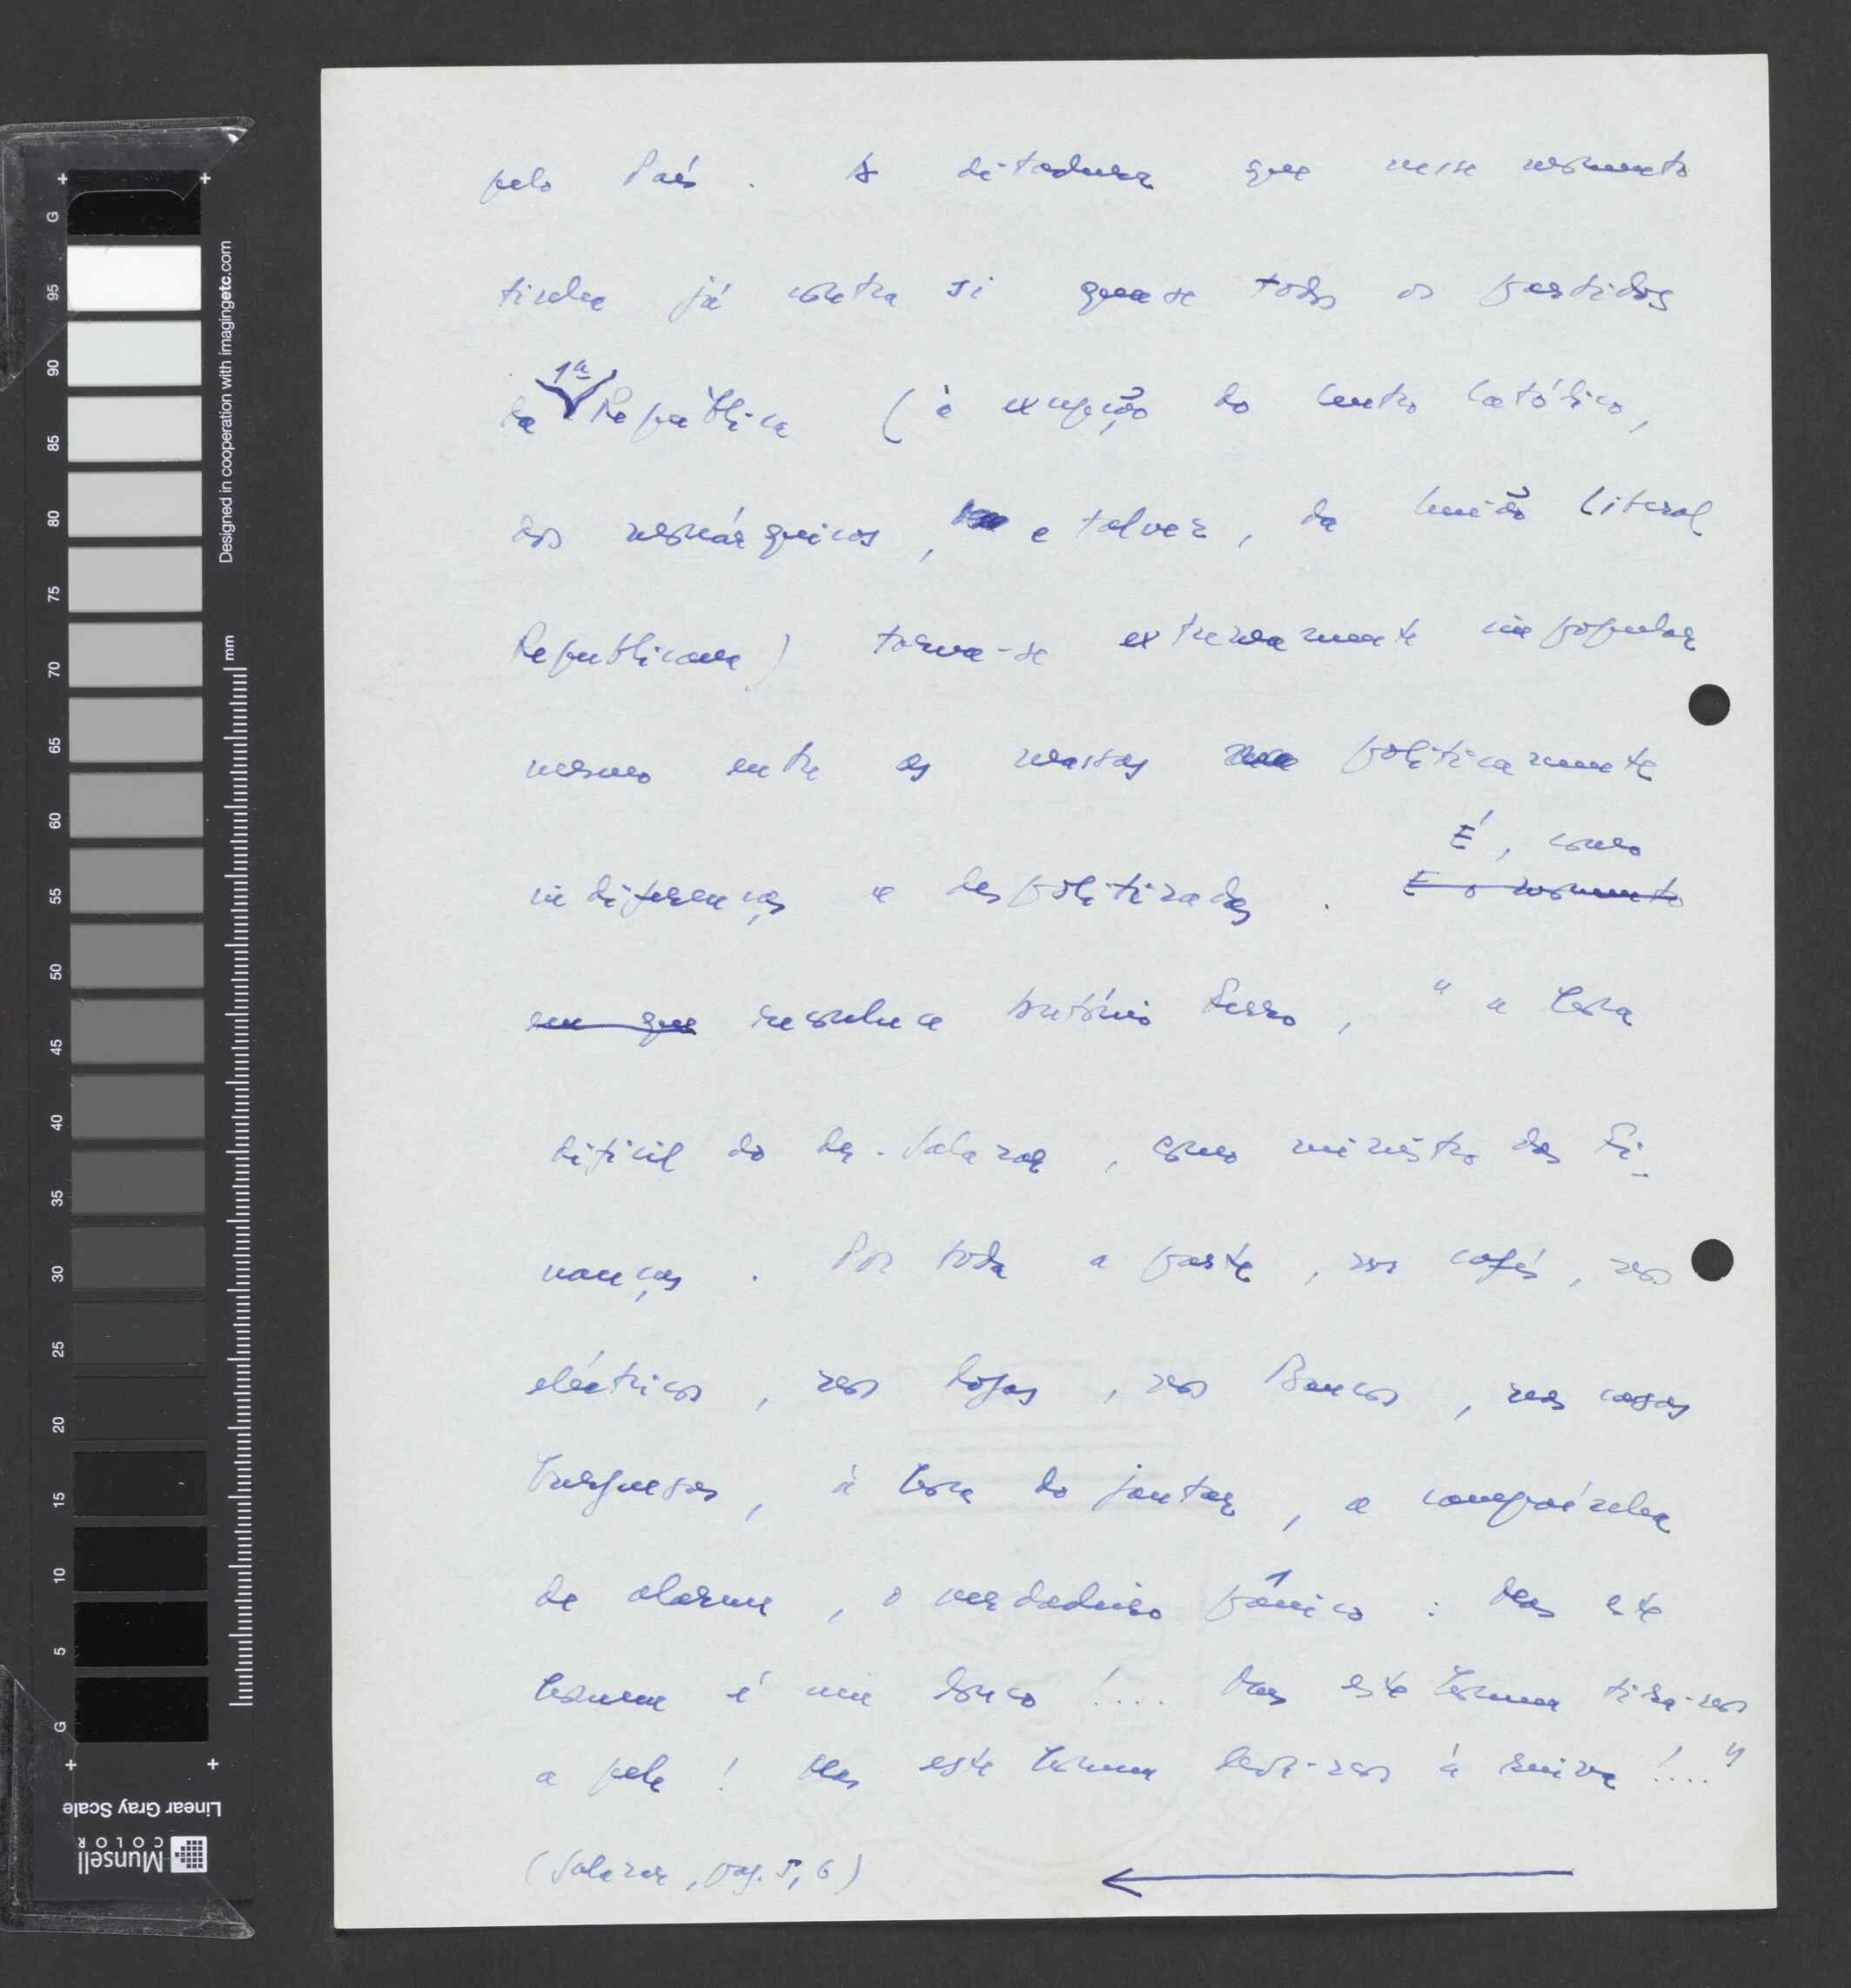 pelo País. A ditadura que nesse momento
tinha já contra si quase todos os partidos
da 1ª República (à excepção do Centro Católico,
dos monárquicos, e talvez, da União Liberal
Republicana) torna-se extremamente impopular
mesmo entre as massas politicamente
indiferenças e despolitizadas. É, como
E o momento
em que reconhece António Ferro, " a hora
dificil do dr. Salazar, como ministro das Fi-
nanças. Por toda a parte, nos cafés, nos
eléctricos, nas lojas, nos Bancos, nas casas
burguesas, à hora do jantar, a campaínha
de alarme, o verdadeiro pânico: Mas este
homem é um louco!.... Mas este homem tira-nos
a pele! Mas este homem leva-nos à ruína!...."
(Salazar, pag. 5, 6)
Designed in cooperation with imagingetc.com
mm
G 95 90 85 80 75 70 65 60 55 50 45 40 35 30 25 20 15 10 5 G
Linear Gray Scale
Munsell
COLOR